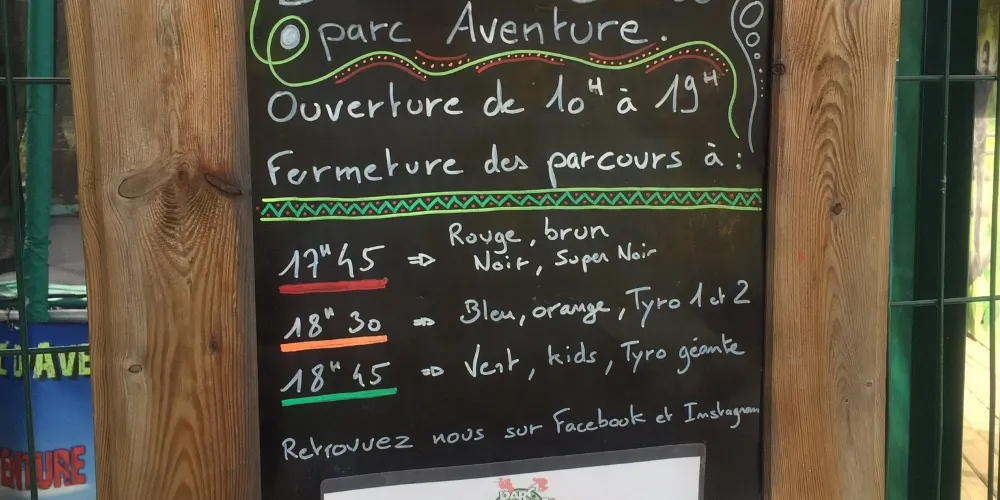 parc Aventure.
Ouverture de 10H à 19H
Fermeture des parcours à :
17H45 ⇒ Rouge, brun
Noir, Super Noir
18H30 ⇒ Bleu, orange, Tyro 1 et 2
18H45 ⇒ Vert, kids, Tyro géante
Retrouvez nous sur Facebook et Instagram
PARC
ENTURE